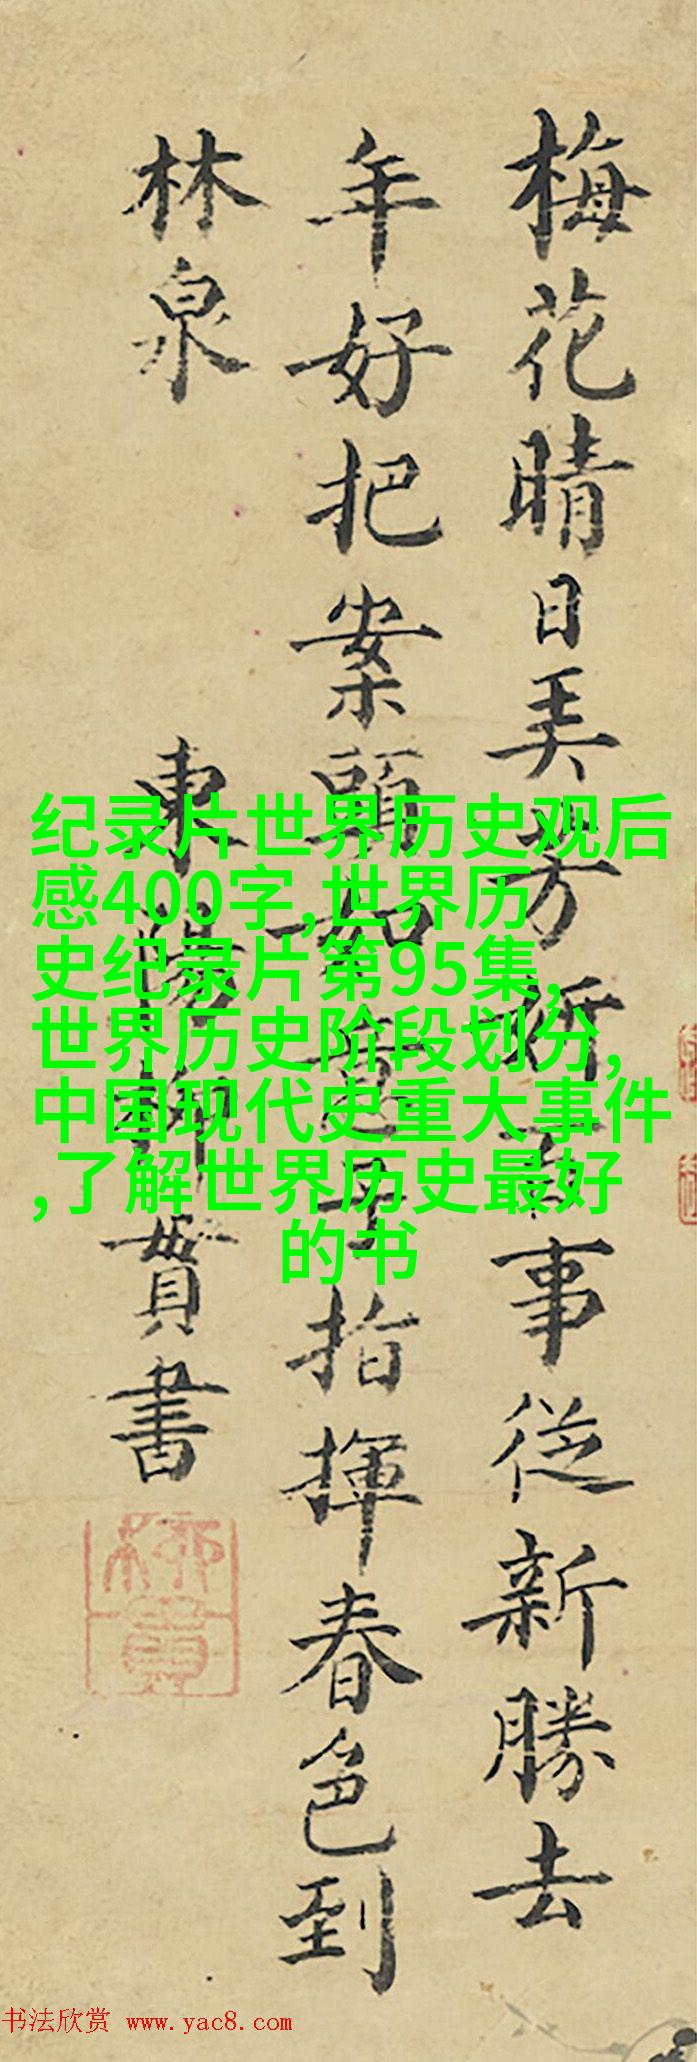 梅花晴日美芳妍百事從新勝去
年好把案頭如意子指揮春色到
林泉
東陽柳貫書
柳貫
纪录片世界历史观后
感400字,世界历
史纪录片第95集,
世界历史阶段划分,
中国现代史重大事件
,了解世界历史最好
的书
书法欣赏 www.yac8.com